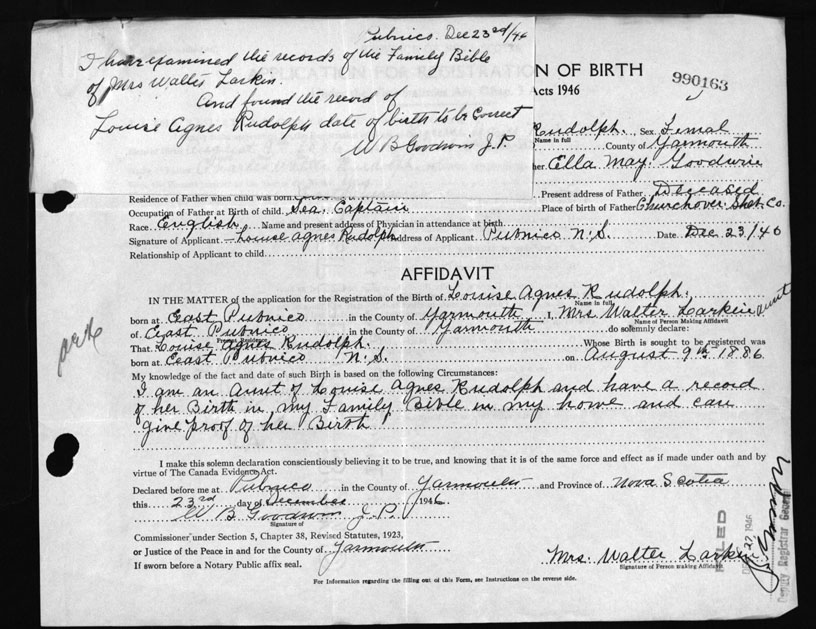 Pubnico. Dec 23rd/46
I have examined the records of the Family Bible
of Mrs Walter Larkin.
And found the record of
Louise Agnes Rudolph date of birth to be correct
W B Goodwin J.P.
N OF BIRTH
Acts 1946
990163
Rudolph. Sex. Femal
Name in full
County of Yarmouth
her Ella May Goodwin
Residence of Father when child was born
Present address of Father Deceased
Occupation of Father at Birth of child. Sea Captain Place of birth of Father Churchover Shel. Co.
Race. English Name and present address of Physician in attendance at birth
Signature of Applicant Louise Agnes Rudolph Address of Applicant Pubnico N.S. Date Dec 23/46
Relationship of Applicant to child
AFFIDAVIT
IN THE MATTER of the application for the Registration of the Birth of Louise Agnes Rudolph.
Name in full
born at East Pubnico in the County of Yarmouth I, Mrs Walter Larkin aunt
Name of Person Making Affidavit
of East Pubnico in the County of Yarmouth do solemnly declare:
Present Residence
That Louise Agnes Rudolph. Whose Birth is sought to be registered was
born at East Pubnico N.S. on August 9th 1886
My knowledge of the fact and date of such Birth is based on the following Circumstances:
I am an Aunt of Louise Agnes Rudolph and have a record
of her Birth in my Family Bible in my home and can
give proof of her Birth
I make this solemn declaration conscientiously believing it to be true, and knowing that it is of the same force and effect as if made under oath and by
virtue of The Canada Evidence Act.
Declared before me at Pubnico in the County of Yarmouth and Province of Nova Scotia
this 23rd day of December 1946
W B Goodwin J.P.
Signature of
Commissioner under Section 5, Chapter 38, Revised Statutes, 1923,
or Justice of the Peace in and for the County of Yarmouth
If sworn before a Notary Public affix seal.
Mrs. Walter Larkin
Signature of Person making Affidavit
FILED
27 1946
Deputy Registrar General
For Information regarding the filling out of this Form, see Instructions on the reverse side.